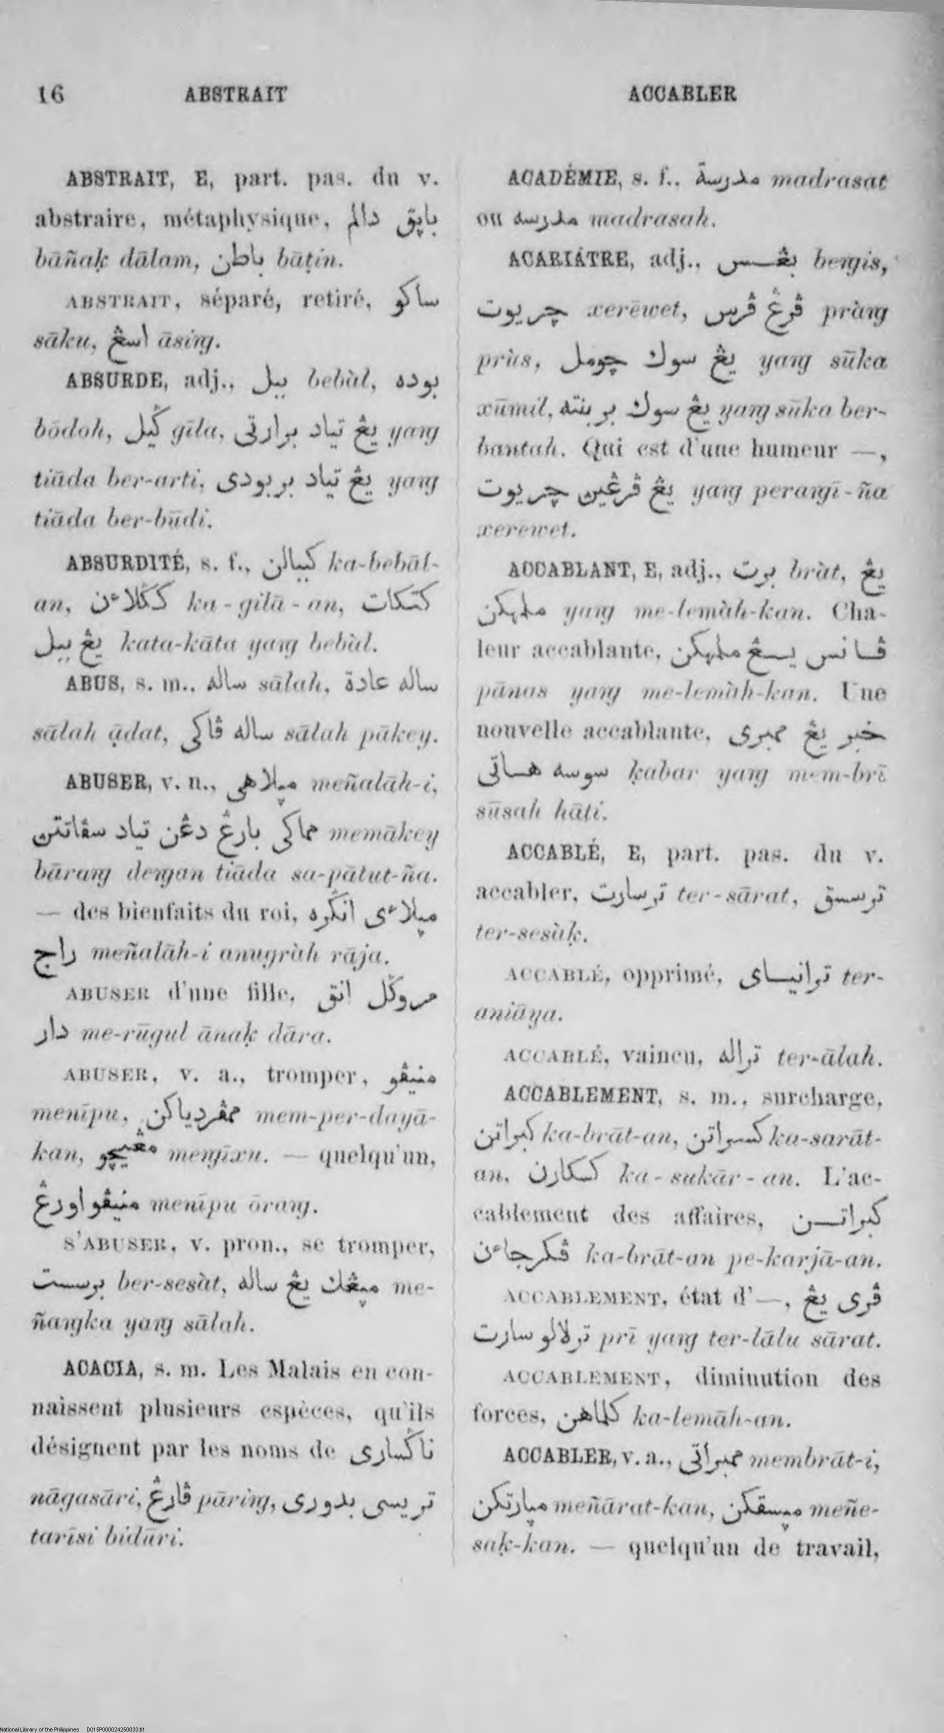 16 ABSTRAIT ACCABLER
ABSTRAIT, E, part. pas. du v.
abstraire, métaphysique, باپق دالم
bāñaḳ dālam, باطن bāṭin.
ABSTRAIT, séparé, retiré, ساكو
sāku, اسيڠ āsiṅg.
ABSURDE, adj., ببل bebàl, بوده
bōdoh, ݢيل gīla, يڠ تياد برارتي yaṅg
tiāda ber-arti, يڠ تياد بربودى yaṅg
tiāda ber-būdi.
ABSURDITÉ, s. f., كببالن ka-bebāl-
an, كݢلاءن ka-gilā-an, كتكات
يڠ ببل kata-kāta yaṅg bebàl.
ABUS, s. m., ساله sālah, ساله عادة
sālah ạ̄dat, ساله ڤاكى sālah pākey.
ABUSER, v. n., مپلاهى meñalāh-i,
مماكى بارڠ دڠن تياد سڤاتتن memākey
bāraṅg deṅgan tiāda sa-pātut-ña.
— des bienfaits du roi, مپلاءى انݢره
راج meñalāh-i anugràh rāja.
ABUSER d'une fille, مروݢل انق
دار me-rūgul ānaḳ dāra.
ABUSER, v. a., tromper, منيڤو
menīpu, ممڤردياكن mem-per-dayā-
kan, مڠيچو meṅgīxu. — quelqu'un,
منيڤو اورڠ menīpu ōraṅg.
S'ABUSER, v. pron., se tromper,
برسست ber-sesàt, مپڠك يڠ ساله me-
ñaṅgka yaṅg sālah.
ACACIA, s. m. Les Malais en con-
naissent plusieurs espèces, qu'ils
désignent par les noms de ناݢسارى
nāgasāri, ڤارڠ pāriṅg, تريسى بدورى
tarīsi bidūri.
ACADÉMIE, s. f., مدرسة madrasat
ou مدرسه madrasah.
ACARIÁTRE, adj., بڠس beṅgis,
چريوت xerēwet, ڤرڠ ڤرس pràṅg
prùs, يڠ سوك چومل yaṅg sūka
xūmil, يڠ سوك بربنته yaṅg sūka ber-
bantah. Qui est d'une humeur —,
يڠ ڤرڠين چريوت yaṅg peraṅgī-ña
xerēwet.
ACCABLANT, E, adj., برت bràt, يڠ
ملمهكن yaṅg me-lemàh-kan. Cha-
leur accablante, ڤانس يڠ ملمهكن
pānas yaṅg me-lemàh-kan. Une
nouvelle accablante, خبر يڠ ممبرى
سوسه هاتى ḳabar yaṅg mem-brī
sūsah hāti.
ACCABLÉ, E, part. pas. du v.
accabler, ترسارت ter-sārat, ترسسق
ter-sesàḳ.
ACCABLÉ, opprimé, ترانياى ter-
aniāya.
ACCABLÉ, vaincu, تراله ter-ālah.
ACCABLEMENT, s. m., surcharge,
كبراتن ka-brāt-an, كسراتن ka-sarāt-
an, كسكارن ka-sukār-an. L'ac-
cablement des affaires, كبراتن
ڤكرجاءن ka-brāt-an pe-karjā-an.
ACCABLEMENT, état d'—, ڤرى يڠ
ترلالو سارت prī yaṅg ter-lālu sārat.
ACCABLEMENT, diminution des
forces, كلماهن ka-lemāh-an.
ACCABLER, v. a., ممبراتى membrāt-i,
مپارتكن meñārat-kan, مپسقكن meñe-
saḳ-kan. — quelqu'un de travail,
National Library of the Philippines